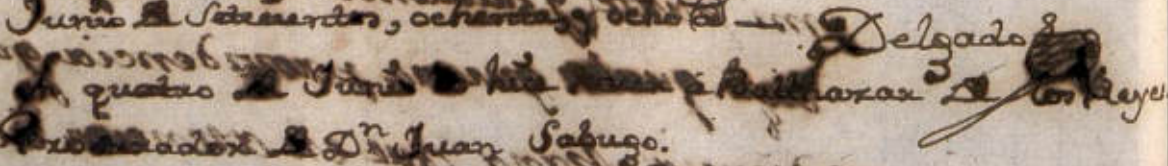 Junio de setecientos, ochenta, y ocho
Delgado
quatro de Junio hise a Balthazar de los Reye
Procurador de Dn Juan Sabugo.